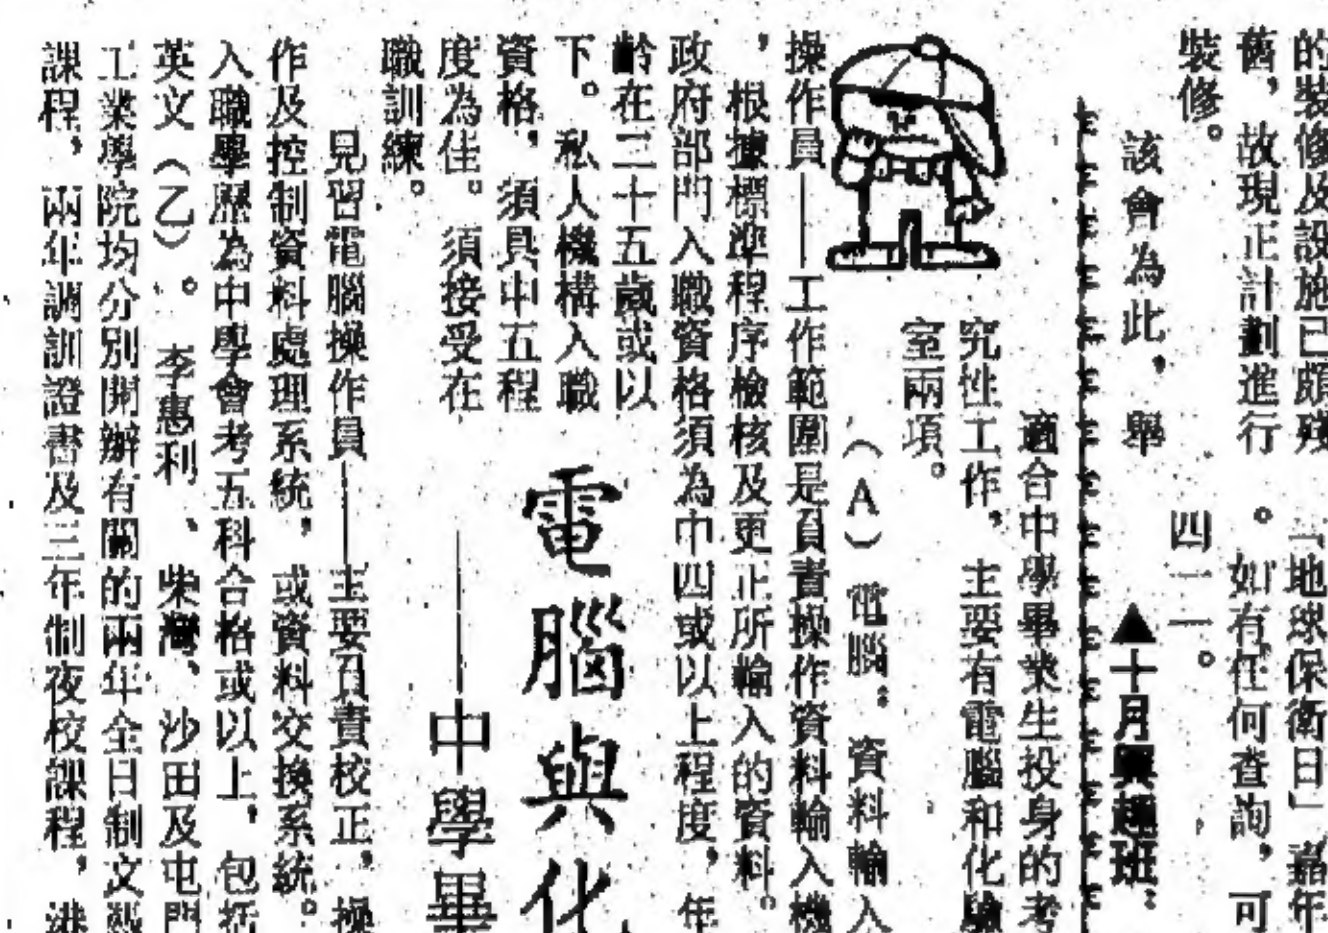 的裝修及設施已頗殘
舊，故現正計劃進行
裝修。
該會為此，舉
「地球保衛日」嘉年
。如有任何查詢，可
四一一。
▲十月興趣班：
適合中學畢業生投身的考
究性工作，主要有電腦和化驗
室兩項。
（A）電腦：資料輸入
操作員——工作範圍是負責操作資料輸入機
，根據標準程序檢核及更正所輸入的資料。
政府部門入職資格須為中四或以上程度，年
齡在二十五歲或以
下。私人機構入職
資格，須具中五程
度為佳。須接受在
職訓練。
電腦與化
——中學畢
見習電腦操作員——主要負責校正，操
作及控制資料處理系統，或資料交換系統。
入職學歷為中學會考五科合格或以上，包括
英文（乙）。李惠利、柴灣、沙田及屯門
工業學院均分別開辦有關的兩年全日制文憑
課程，兩年調訓證書及三年制夜校課程，港